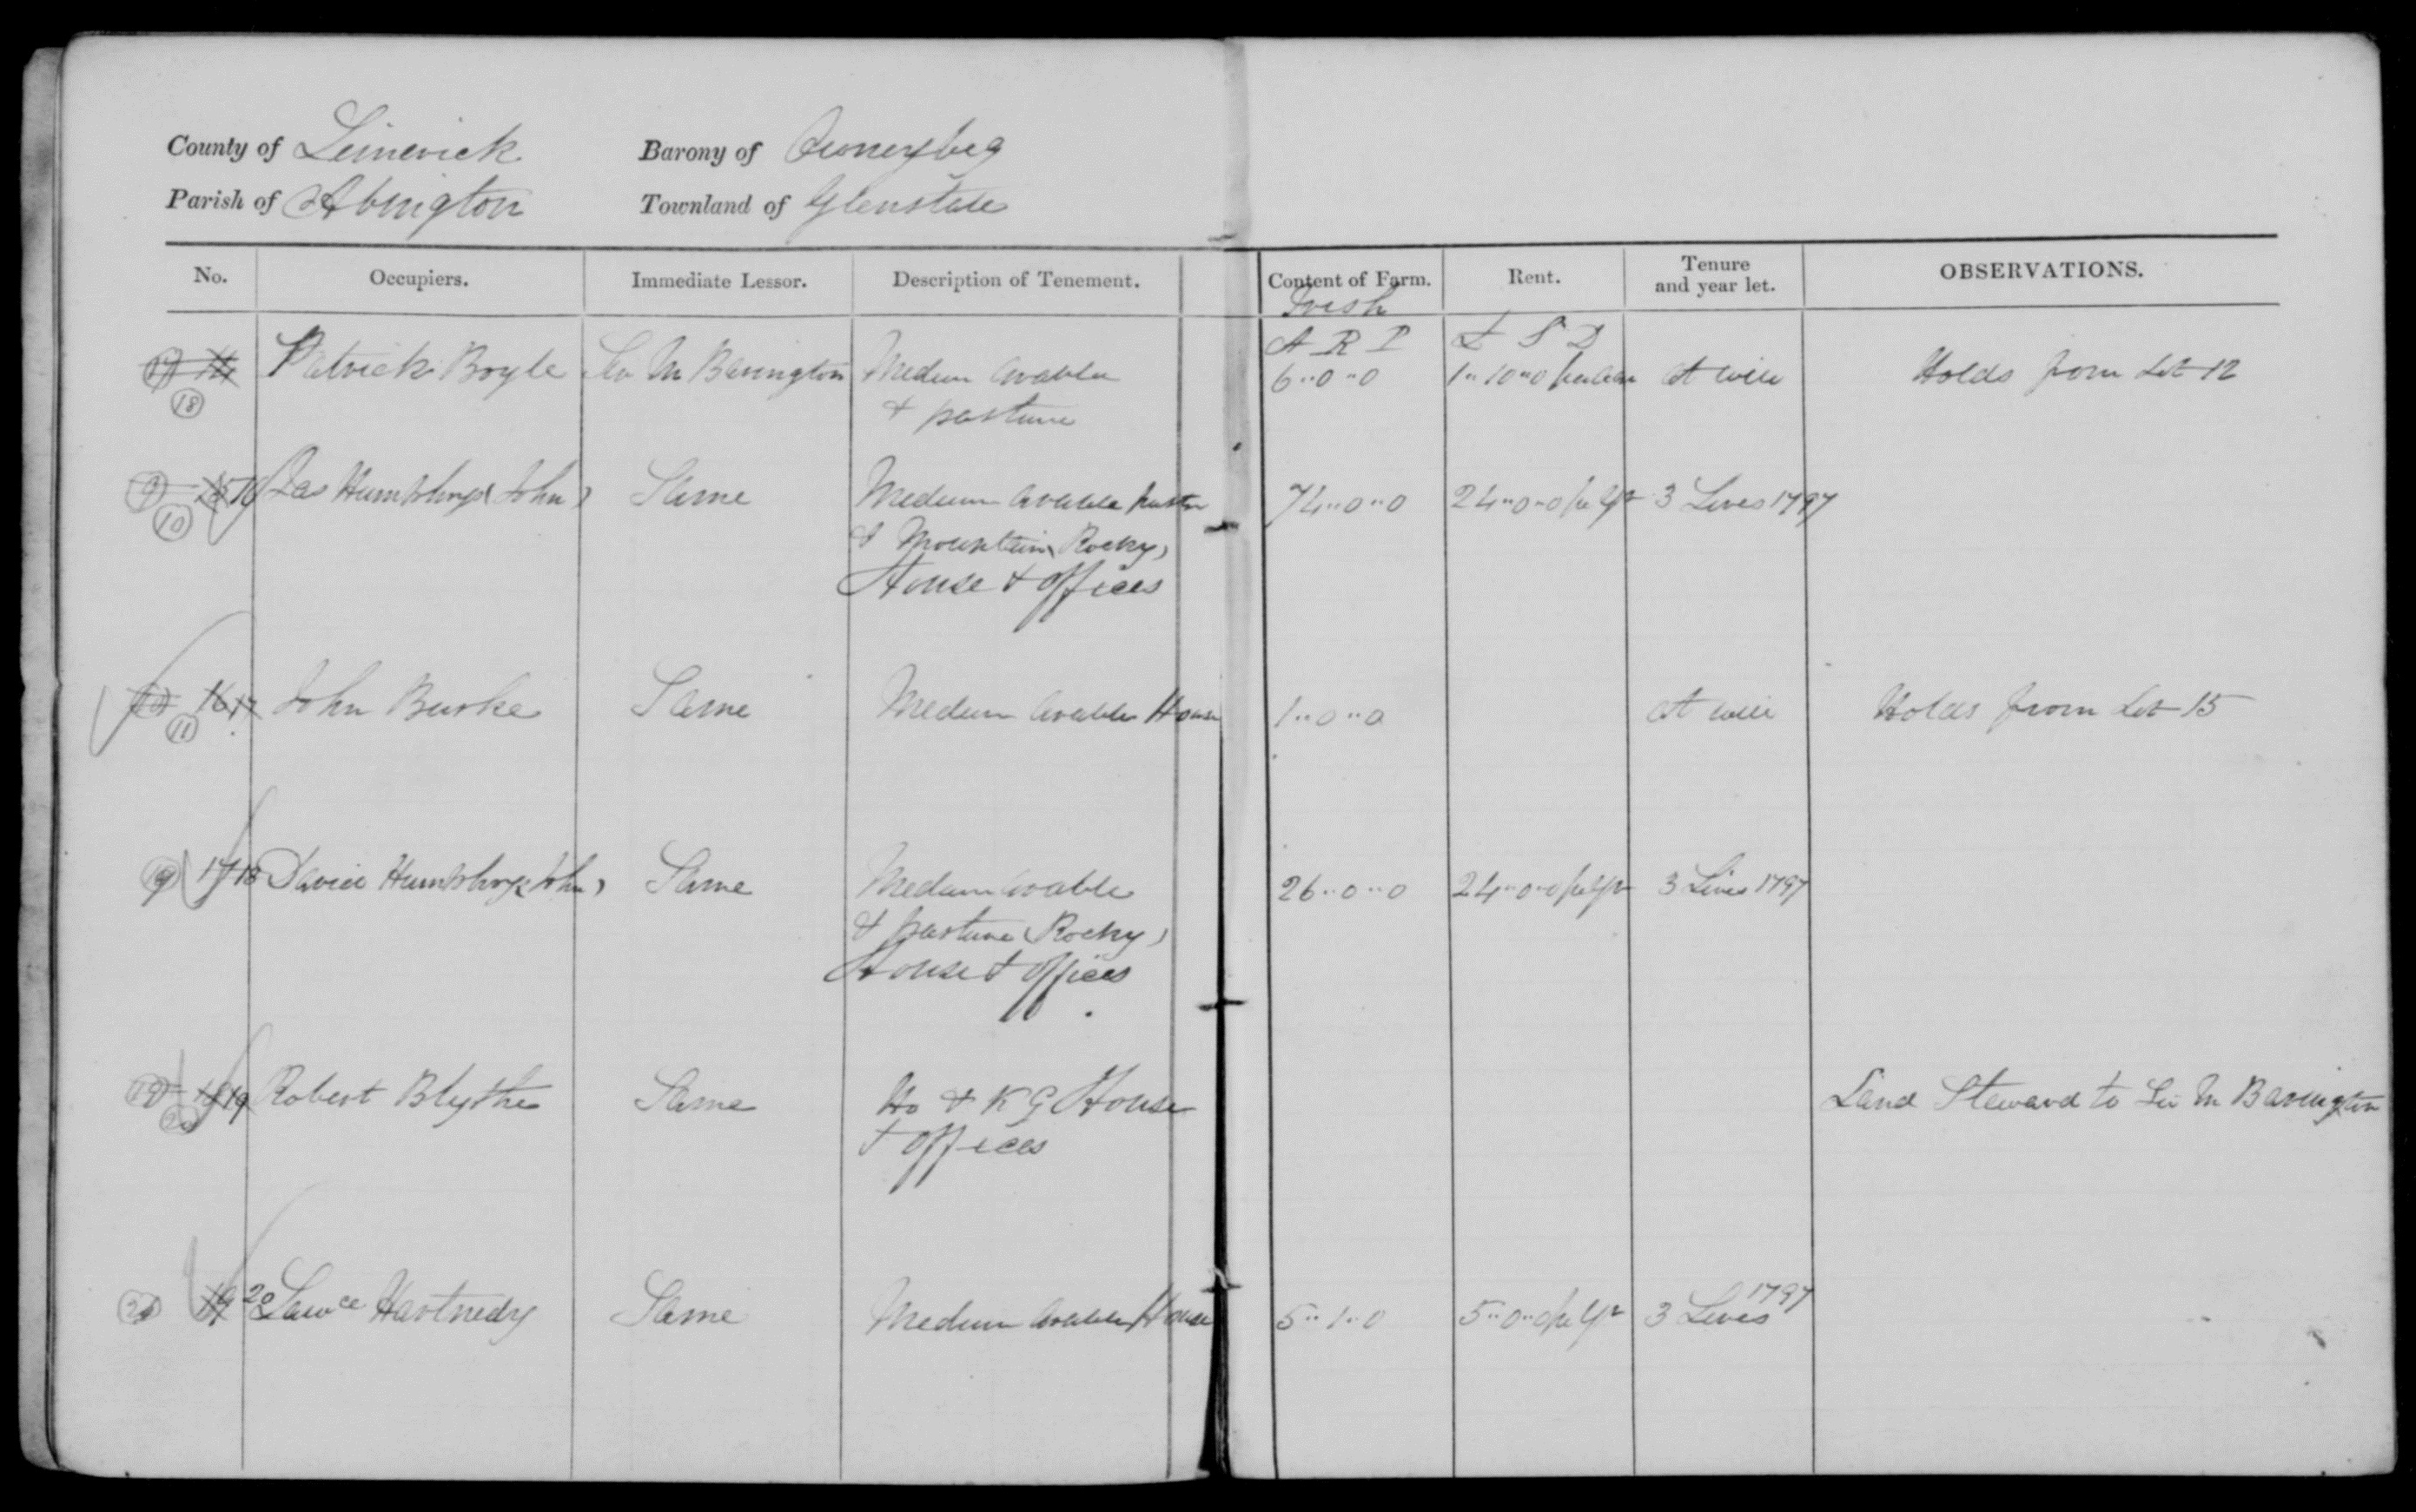 County of Limerick Barony of Owneybeg
Parish of Abington Townland of Glenstale
No. Occupiers. Immediate Lessor. Description of Tenement. Content of Farm. Rent. Tenure and year let. OBSERVATIONS.
Irish
A R P £ S D
14 Patrick Boyle Sir M Barington Medium Arable 6..0..0 1..10..0 per Acre At will Holds from Lot 12
18 & pasture
9 15 16 Jas Humphrys (John) Same Medium Arable pastre 74..0..0 24..0..0 per Yr 3 Lives 1797
10 & Mountain (Rocky)
House & offices
10 16 17 John Burke Same Medium Arable House 1..0..0 At will Holds from Lot 15
11
17 18 David Humphrys (John) Same Medium Arable 26..0..0 24..0..0 per Yr 3 Lives 1797
& pasture (Rocky)
House & offices
18 19 Robert Blythe Same Ho & K G House Land Steward to Sir M Barington
& offices
19 20 Lawce Hartnedy Same Medium Arable House 5..1..0 5..0..0 per Yr 3 Lives 1797